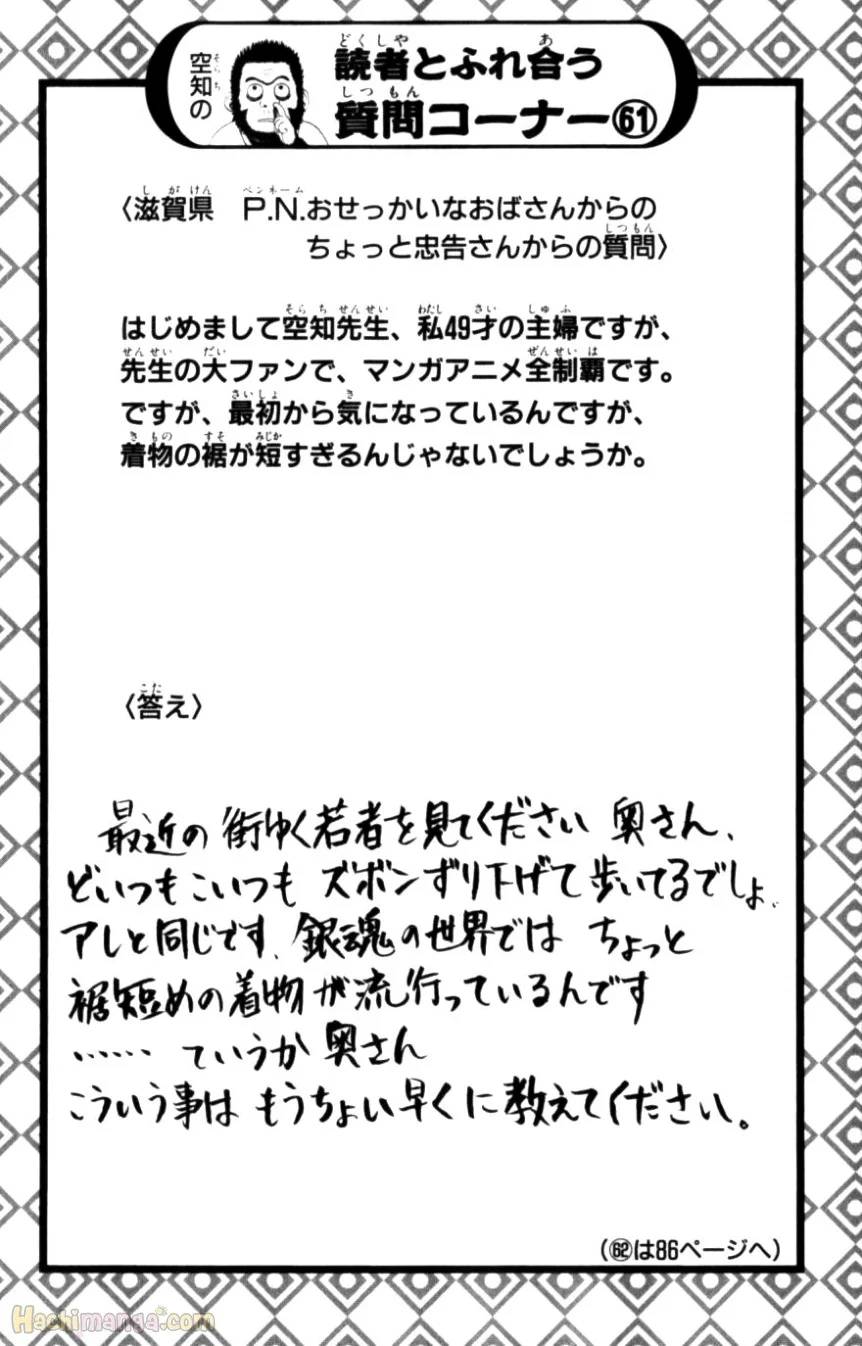 空知の
読者とふれ合う
質問コーナー㉛
〈滋賀県 P.N.おせっかいなおばさんからの
ちょっと忠告さんからの質問〉
はじめまして空知先生、私49才の主婦ですが、
先生の大ファンで、マンガアニメ全制覇です。
ですが、最初から気になっているんですが、
着物の裾が短すぎるんじゃないでしょうか。
〈答え〉
最近の街ゆく若者を見てください 奥さん、
どいつもこいつも ズボンずり下げて歩いてるでしょ、
アレと同じです、銀魂の世界では ちょっと
裾短めの着物が流行っているんです
…… ていうか 奥さん
こういう事は もうちょい早くに教えてください。
(62は86ページへ)
Hachimanga.com